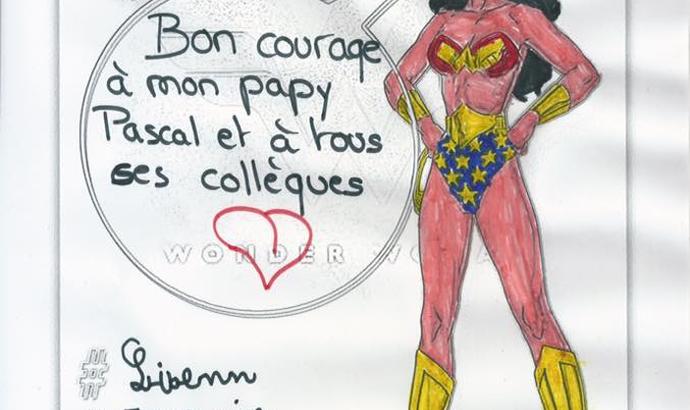 Bon courage
à mon papy
Pascal et à tous
ses collègues
WONDER WO
#